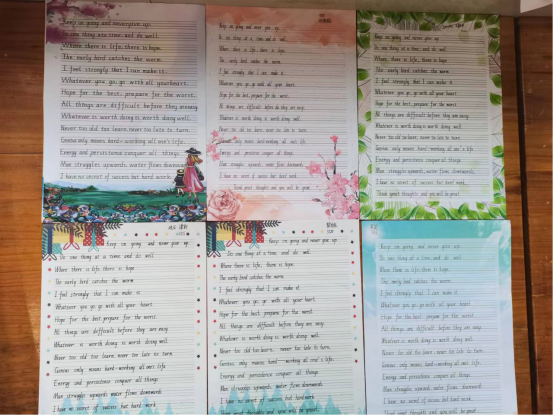 Keep on going and never give up.
Do one thing at a time, and do well.
Where there is life, there is hope.
The early bird catches the worm.
I feel strongly that I can make it.
Whatever you go, go with all your heart.
Hope for the best, prepare for the worst.
All things are difficult before they are easy.
Whatever is worth doing is worth doing well.
Never too old to learn, never too late to turn.
Genius only means hard-working all one's life.
Energy and persistence conquer all things.
Man struggles upwards, water flows downwards.
I have no secret of success but hard work.
Keep on going and never give up.
Do one thing at a time, and do well.
Where there is life, there is hope.
The early bird catches the worm.
I feel strongly that I can make it.
Whatever you go, go with all your heart.
Hope for the best, prepare for the worst.
All things are difficult before they are easy.
Whatever is worth doing is worth doing well.
Never too old to learn, never too late to turn.
Genius only means hard-working all one's life.
Energy and persistence conquer all things.
Man struggles upwards, water flows downwards.
I have no secret of success but hard work.
Think great thoughts and you will be great!
Keep on going and never give up.
Do one thing at a time, and do well.
Where there is life, there is hope.
The early bird catches the worm.
I feel strongly that I can make it.
Whatever you go, go with all your heart.
Hope for the best, prepare for the worst.
All things are difficult before they are easy.
Whatever is worth doing is worth doing well.
Never too old to learn, never too late to turn.
Genius only means hard-working all one's life
Energy and persistence conquer all things.
Man struggles upwards, water flows downwards.
I have no secret of success but hard work.
Think great thoughts and you will be great!
Keep on going and never give up.
Do one thing at a time, and do well.
Where there is life there is hope.
The early bird catches the worm.
I feel strongly that I can make it.
Whatever you go, go with all your heart.
Hope for the best, prepare for the worst.
All things are difficult before they are easy.
Whatever is worth doing is worth doing well.
Never too old too learn, never too late to turn
Genius only means hard-working all one's life
Energy and persistence conquer all things.
Man struggles upwards, water flows downwards.
I have no secret of success but hard work.
Keep on going and never give up.
Do one thing at a time, and do well.
Where there is life, there is hope.
The early bird catches the worm.
I feel strongly that I can make it
Whatever you go, go with all your heart.
Hope for the best, prepare for the worst.
All things are difficult before they are easy.
Whatever is worth doing is worth doing well.
Never too old to learn, never too late to turn.
Genius only means hard-working all one's life.
Energy and persistence conquer all things.
Man struggles upwards, water flows downwards.
I have no secret of success but hard work
great thoughts and you will be great!
Keep on going and never give up.
Do one thing at a time, and do well.
Where there is life, there is hope.
The early bird catches the worm.
I feel strongly that I can make it.
Whatever you go, go with all your heart.
Hope for the best, prepare for the worst.
All things are difficult before they are easy.
Whatever is worth doing is worth doing well.
Never too old to learn, never too late to turn.
Genius only means hard-working all one's life.
Energy and persistence conquer all things.
Man struggles upwards, water flows downwards.
I have no secret of success but hard work.
great thoughts and you will be great!